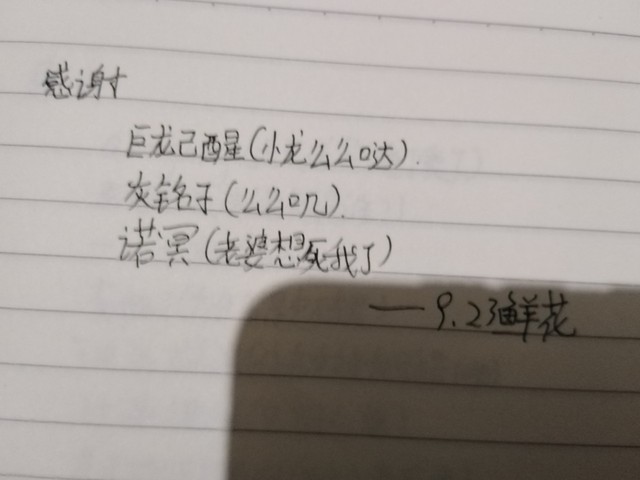 感谢
巨龙己酉星(小龙么么哒).
友铭子(么么叽).
诺冥(老婆想死我了)
——9.23鲜花